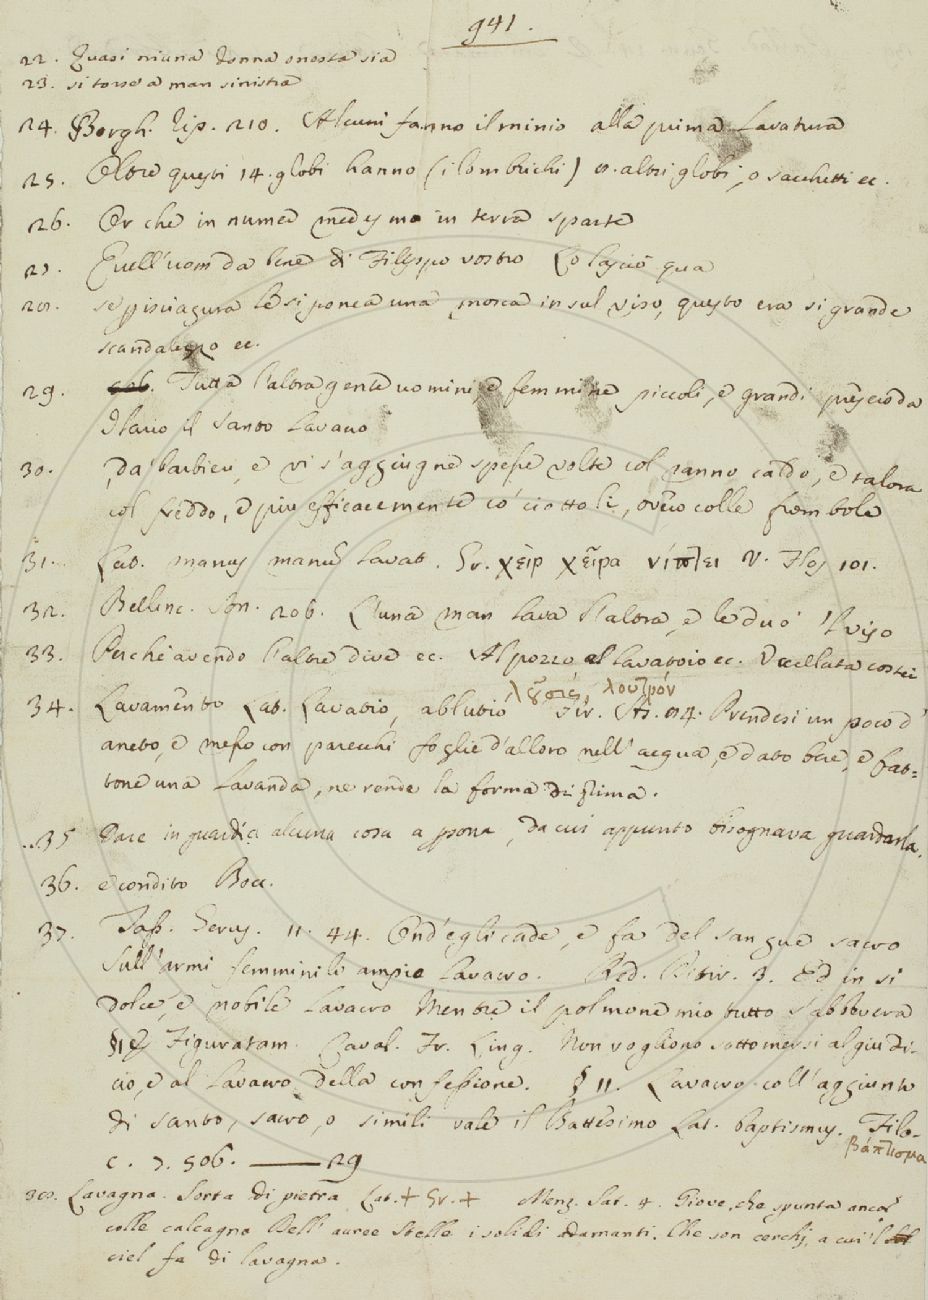 941.
22. Quasi niuna donna onesta sia
23. si torse a man sinistra
24. Borgh. Rip. 210. Alcuni fanno il minio alla prima Lavatura
25. Oltre questi 14. globi hanno (i lombrichi) 8. altri globi, o sacchetti ec.
26. Or che in numer medesmo in terra sparte
27. Quell'uom da bene di Filippo vostro Lo lasciò qua
28. se pisciagura le si ponea una mosca in sul viso, questo era si grande
scandalezzo ec.
29. Tutta l'altra gente uomini e femmine piccoli, e grandi presero da
Ilario il Santo Lavacro
30. da' barbieri, e vi s'aggiugne spesse volte col ranno caldo, e talora
col freddo, e piu efficacemente co' ciottoli, overo colle frombole
31. Lat. manus manum lavat. Gr. χεὶρ χεῖρα νίπτει V. Flos 101.
32. Bellinc. Son. 206. L'una man lava l'altra, e le duo 'l viso
33. Perche avendo l'altre dive ec. Al pozzo al lavatoio ec. Uccellata costei
λοῦσις, λουτρόν
34. Lavamento Lat. Lavatio, ablutio Gr. 84. Prendesi un poco d'
aneto, e messo con parecchi foglie d'alloro nell'acqua, e dato bere, e fat=
tone una Lavanda, ne rende la forma di prima.
35 Dare in guardia alcuna cosa a persona, da cui appunto bisognava guardarla.
36. e condito Bocc.
37. Tass. Gerus. 11. 44. Ond'egli cade, e fa del sangue sacro
Sull'armi femminili ampio Lavacro. Red. Ditir. 3. Ed in si
dolce, e nobile Lavacro Mentre il polmone mio tutto s'abbevera
§ I Figuratam. Caval. Fr. Ling. Non vogliono sottomersi al giudi-
cio, e al Lavacro della confessione. § II. Lavacro coll'aggiunto
di santo, sacro, o simili vale il Battesimo Lat. baptismus. Filo-
βάπτισμα
c. 7. 506. —— 29
38. Lavagna. Sorta di pietra Lat. + Gr. + Menz. Sat. 4. Giove, che spunta ancor
colle calcagna Dell' auree Stelle i solidi adamanti, Che son cerchj, a cui 'l
ciel fa di lavagna.